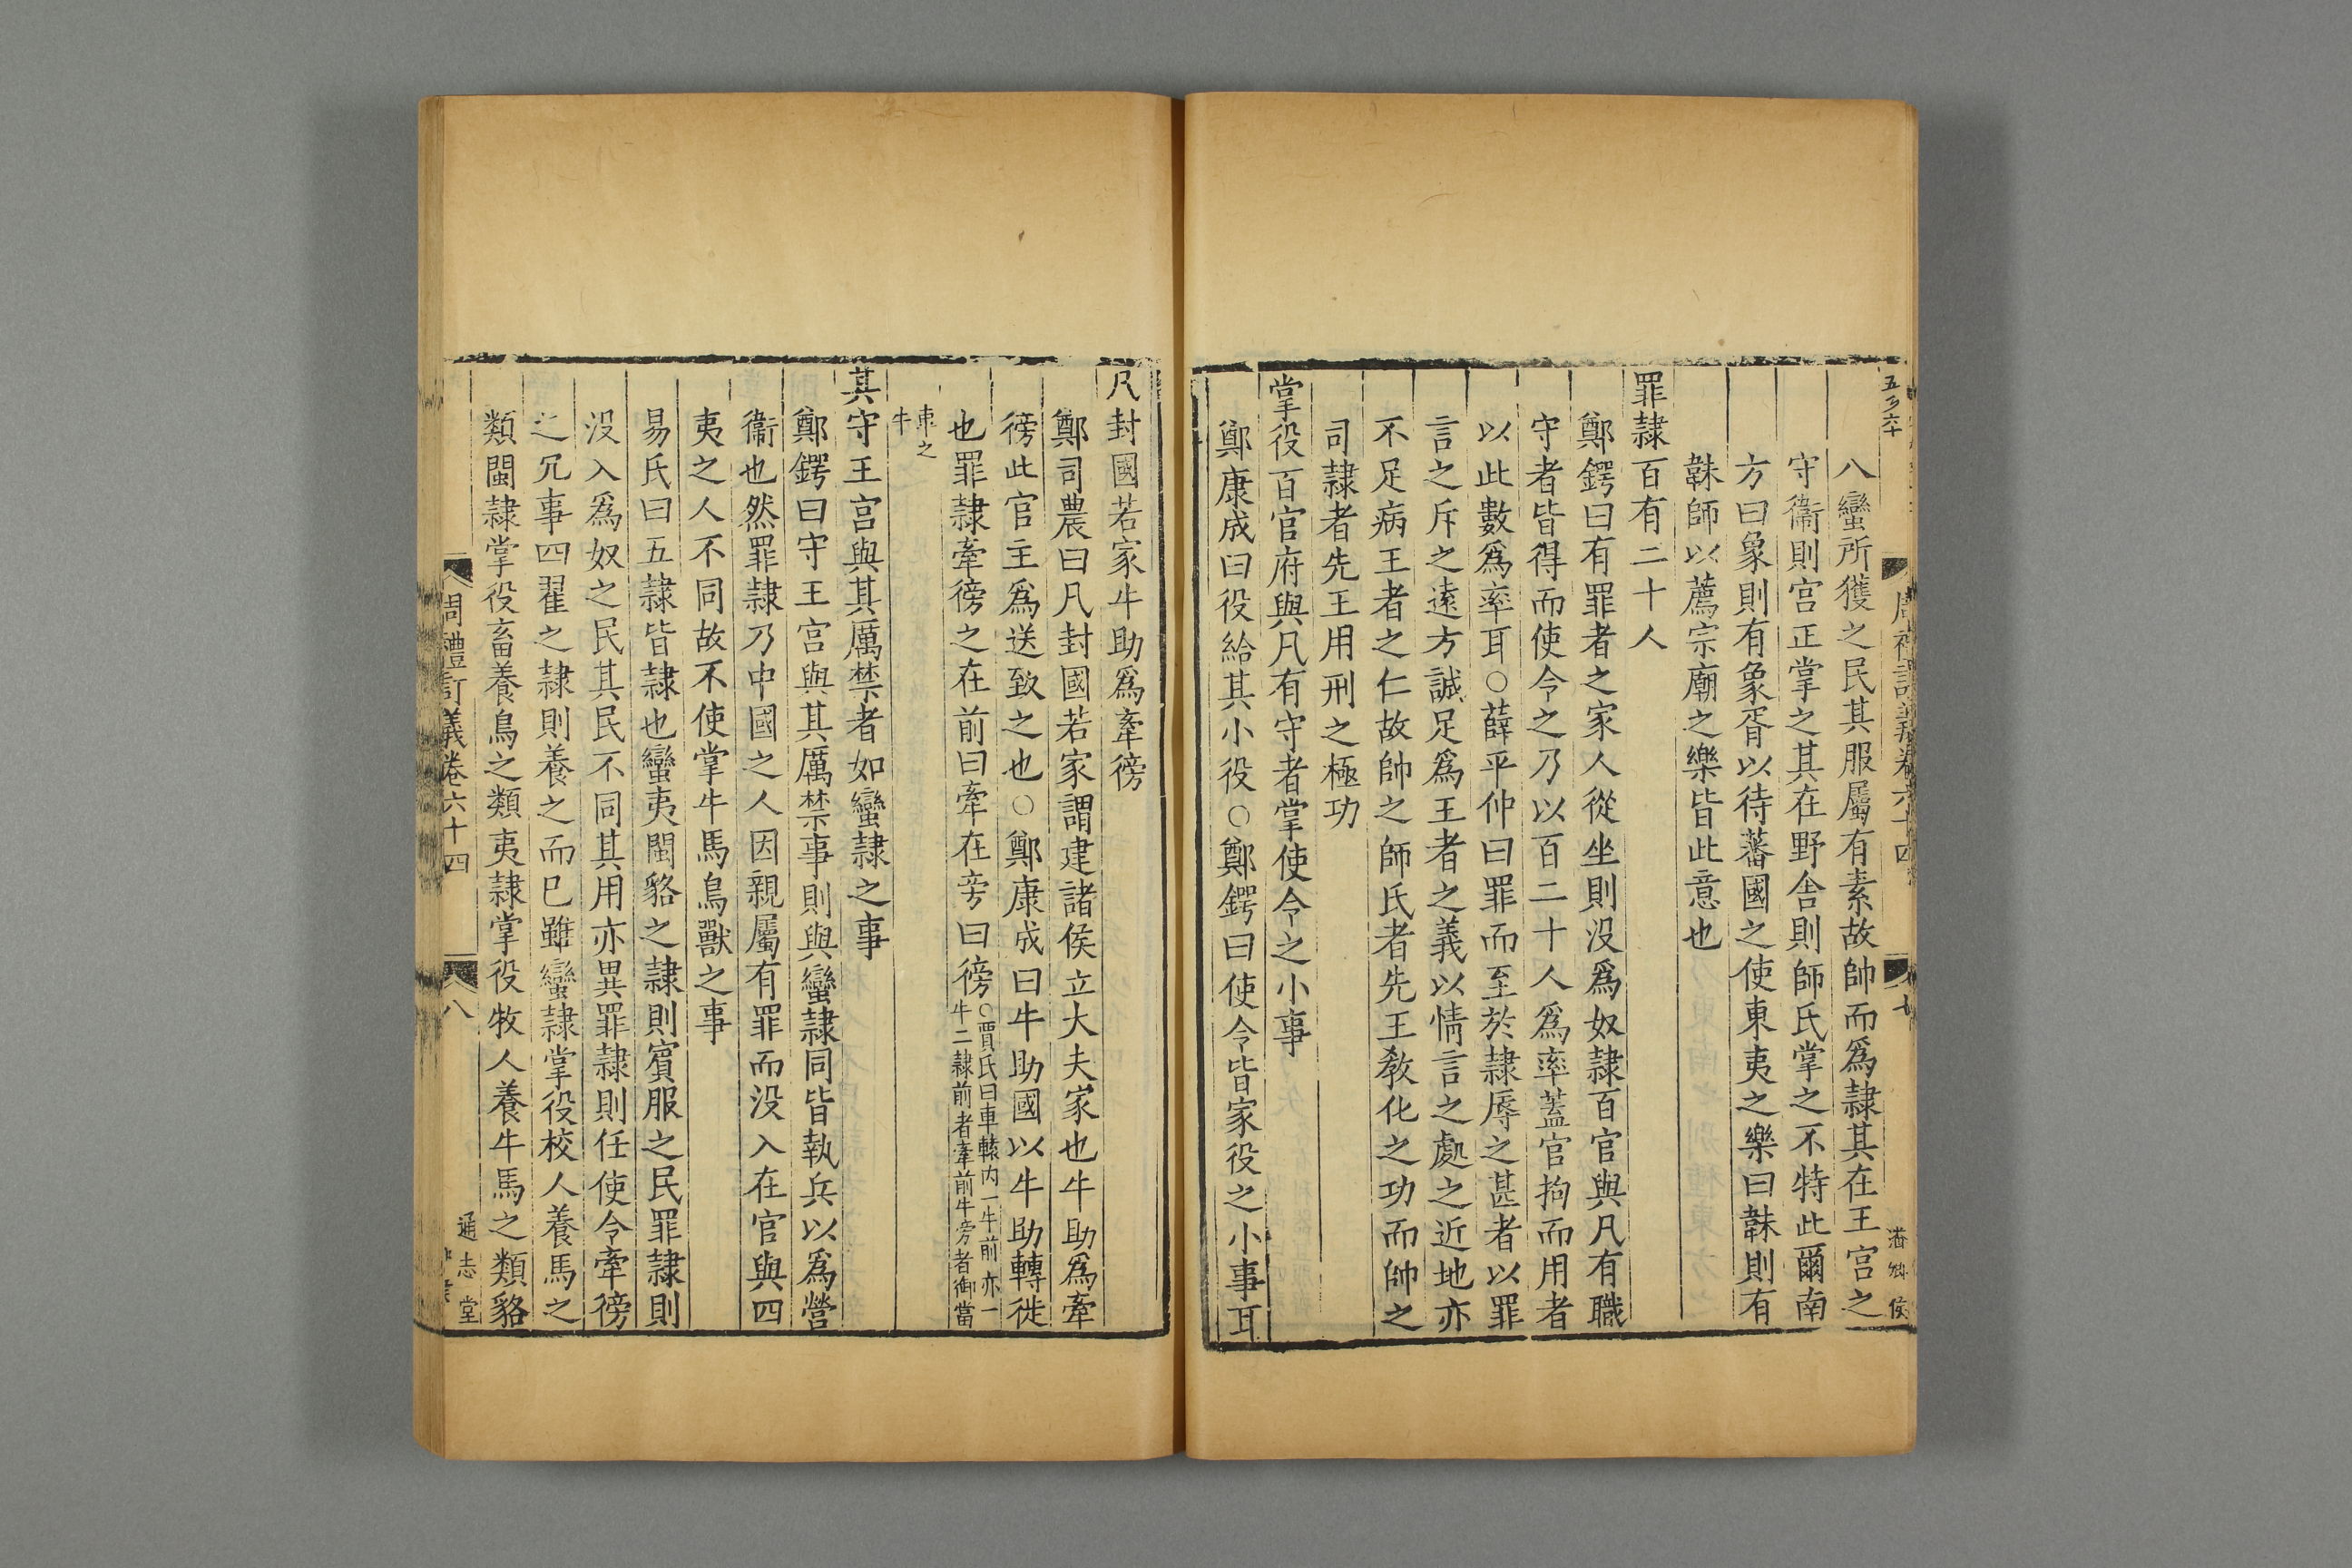 五百六十
八蠻所獲之民其服屬有素故帥而為隷其在王宮之
守衞則宮正掌之其在野舍則師氏掌之不特此爾南
方曰象則有象胥以待蕃國之使東夷之樂曰韎則有
韎師以薦宗廟之樂皆此意也
罪隷百有二十人
鄭鍔曰有罪者之家人從坐則没為奴隷百官與凡有職
守者皆得而使令之乃以百二十人為率蓋官拘而用者
以此數為率耳○薛平仲曰罪而至於隷辱之甚者以罪
言之斥之逺方誠足為王者之義以情言之處之近地亦
不足病王者之仁故帥之師氏者先王教化之功而帥之
司隷者先王用刑之極功
掌役百官府與凡有守者掌使令之小事
鄭康成曰役給其小役○鄭鍔曰使令皆家役之小事耳
凡封國若家牛助為牽徬
鄭司農曰凡封國若家謂建諸侯立大夫家也牛助為牽
徬此官主為送致之也○鄭康成曰牛助國以牛助轉徙
也罪隷牽徬之在前曰牽在旁曰徬○賈氏曰車轅内一牛前亦一
牛二隷前者牽前牛旁者御當
車之
牛
其守王宮與其厲禁者如蠻隷之事
鄭鍔曰守王宮與其厲禁事則與蠻隷同皆執兵以為營
衞也然罪隷乃中國之人因親屬有罪而没入在官與四
夷之人不同故不使掌牛馬鳥獸之事
易氏曰五隷皆隷也蠻夷閩貉之隷則賓服之民罪隷則
没入為奴之民其民不同其用亦異罪隷則任使令牽徬
之冗事四翟之隷則養之而已雖蠻隷掌役校人養馬之
類閩隷掌役畜養鳥之類夷隷掌役牧人養牛馬之類貉
周禮訂義卷六十四
八
通志堂